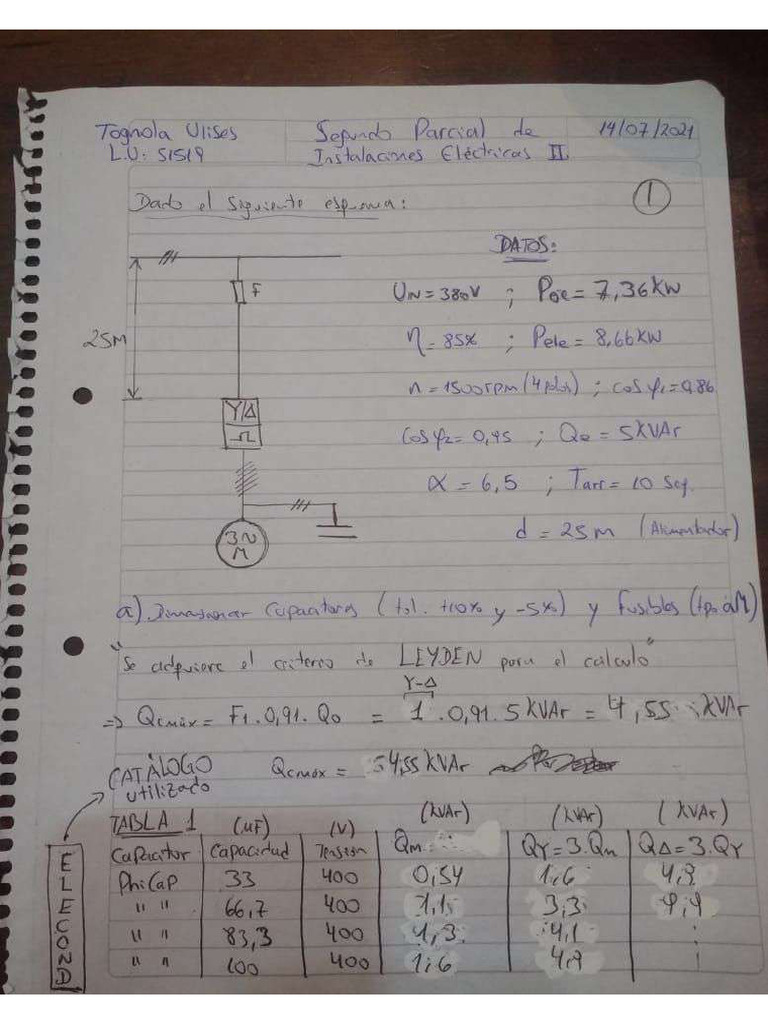 Tognola Ulises
L.U: 51519
Segundo Parcial de
Instalaciones Eléctricas II.
14/07/2021
Dado el siguiente esquema:
1
DATOS:
UN = 380V ; Poe = 7,36 KW
η = 85% ; Pele = 8,66 KW
n = 1500 rpm (4 polos) ; cos φ1 = 0,86
cos φ2 = 0,45 ; Qo = 5 KVAr
α = 6,5 ; Tarr = 10 Seg.
d = 25 M (Alimentador)
25M
F
Y/Δ
3~
M
a). Dimensionar Capacitores (tol. +10% y -5%) y Fusibles (tipo aM)
"Se adquiere el criterio de LEYDEN para el cálculo"
Y-Δ
⇒ Qcmáx = F1 . 0,91 . Qo = 1 . 0,91 . 5 KVAr = 4,55 KVAr
CATÁLOGO
utilizado
Qcmáx = 4,55 KVAr
ELECOND
TABLA 1 (µF) (V) (KVAr) (KVAr) (KVAr)
Capacitor Capacidad Tension Qm QY = 3.Qm QΔ = 3.QY
PhiCap 33 400 0,54 1,6 4,9
" " 66,7 400 1,1 3,3 9,9
" " 83,3 400 1,3 4,1
" " 100 400 1,6 4,9